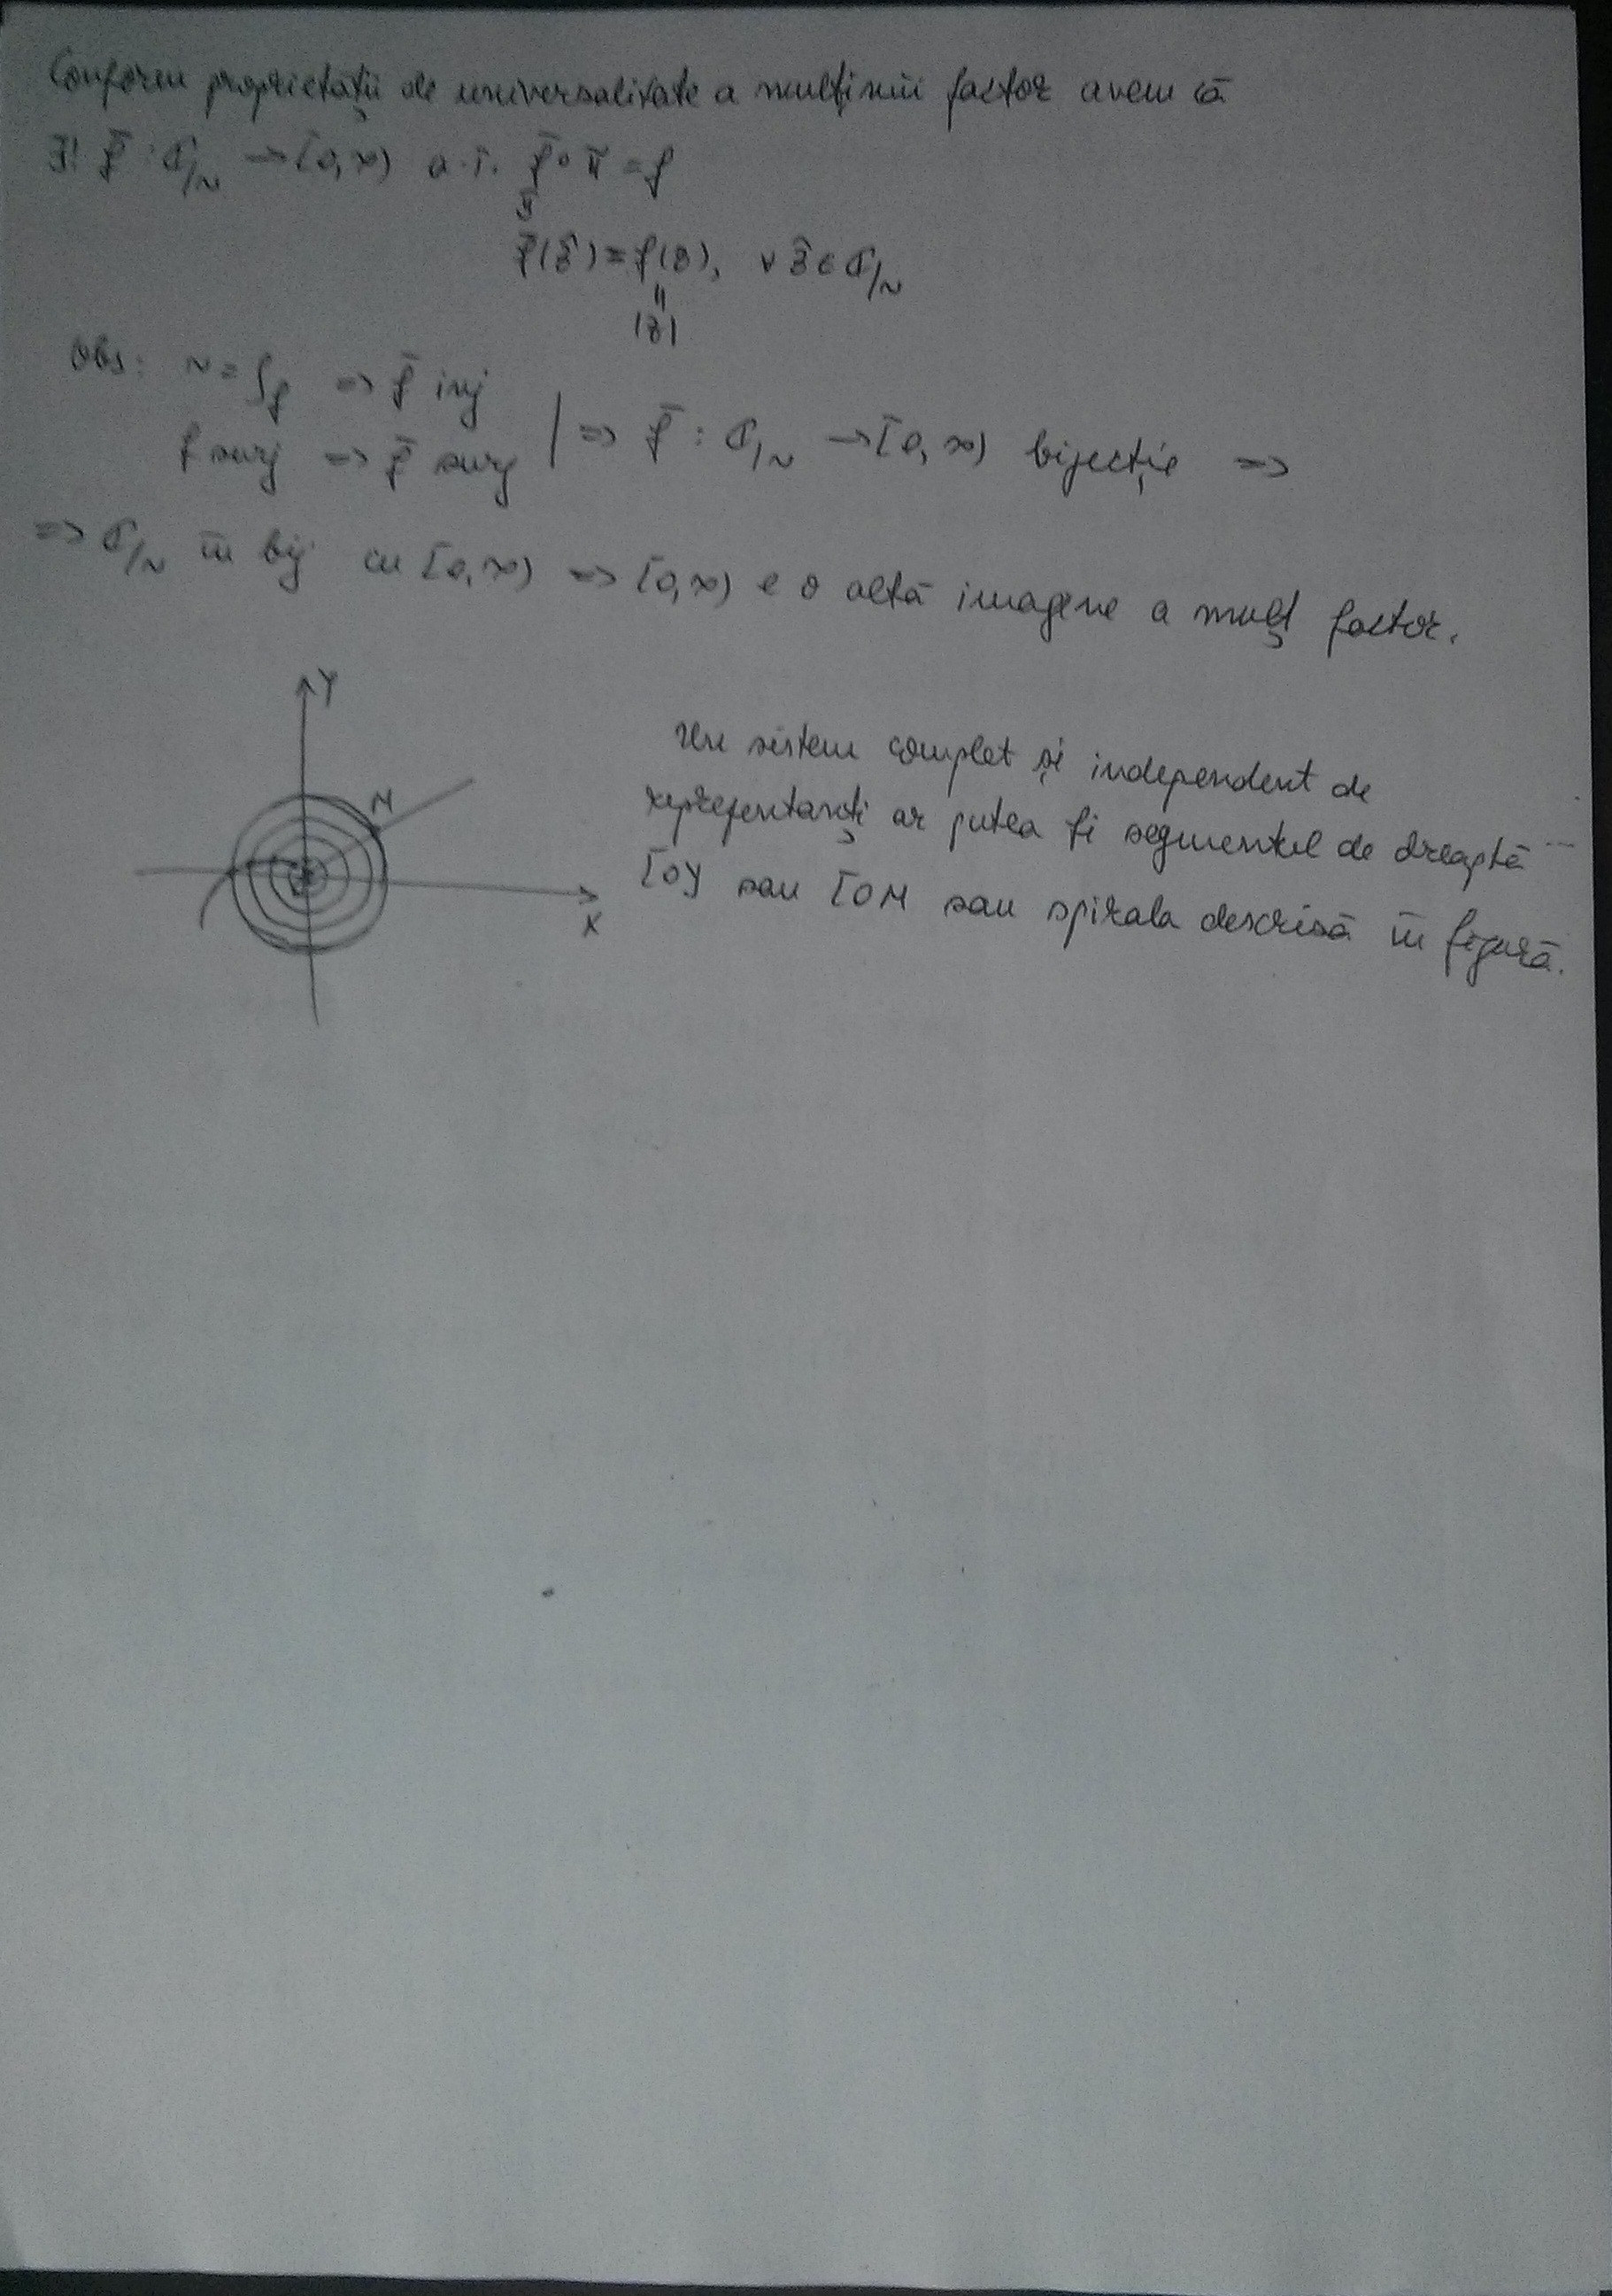 Conform proprietății de universalitate a mulțimii factor avem că
∃! f̄ : ℂ/~ → [0,∞) a.î. f̄ ∘ π = f
⇓
f̄(ẑ) = f(z), ∀ ẑ ∈ ℂ/~
||
|z|
Obs: ~ = ρf => f̄ inj
f surj => f̄ surj | => f̄ : ℂ/~ → [0,∞) bijecție =>
=> ℂ/~ în bij cu [0,∞) => [0,∞) e o altă imagine a mulț factor.
Y
M
X
Un sistem complet și independent de
reprezentanți ar putea fi segmentul de dreaptă
[OY sau [OM sau spirala descrisă în figură.